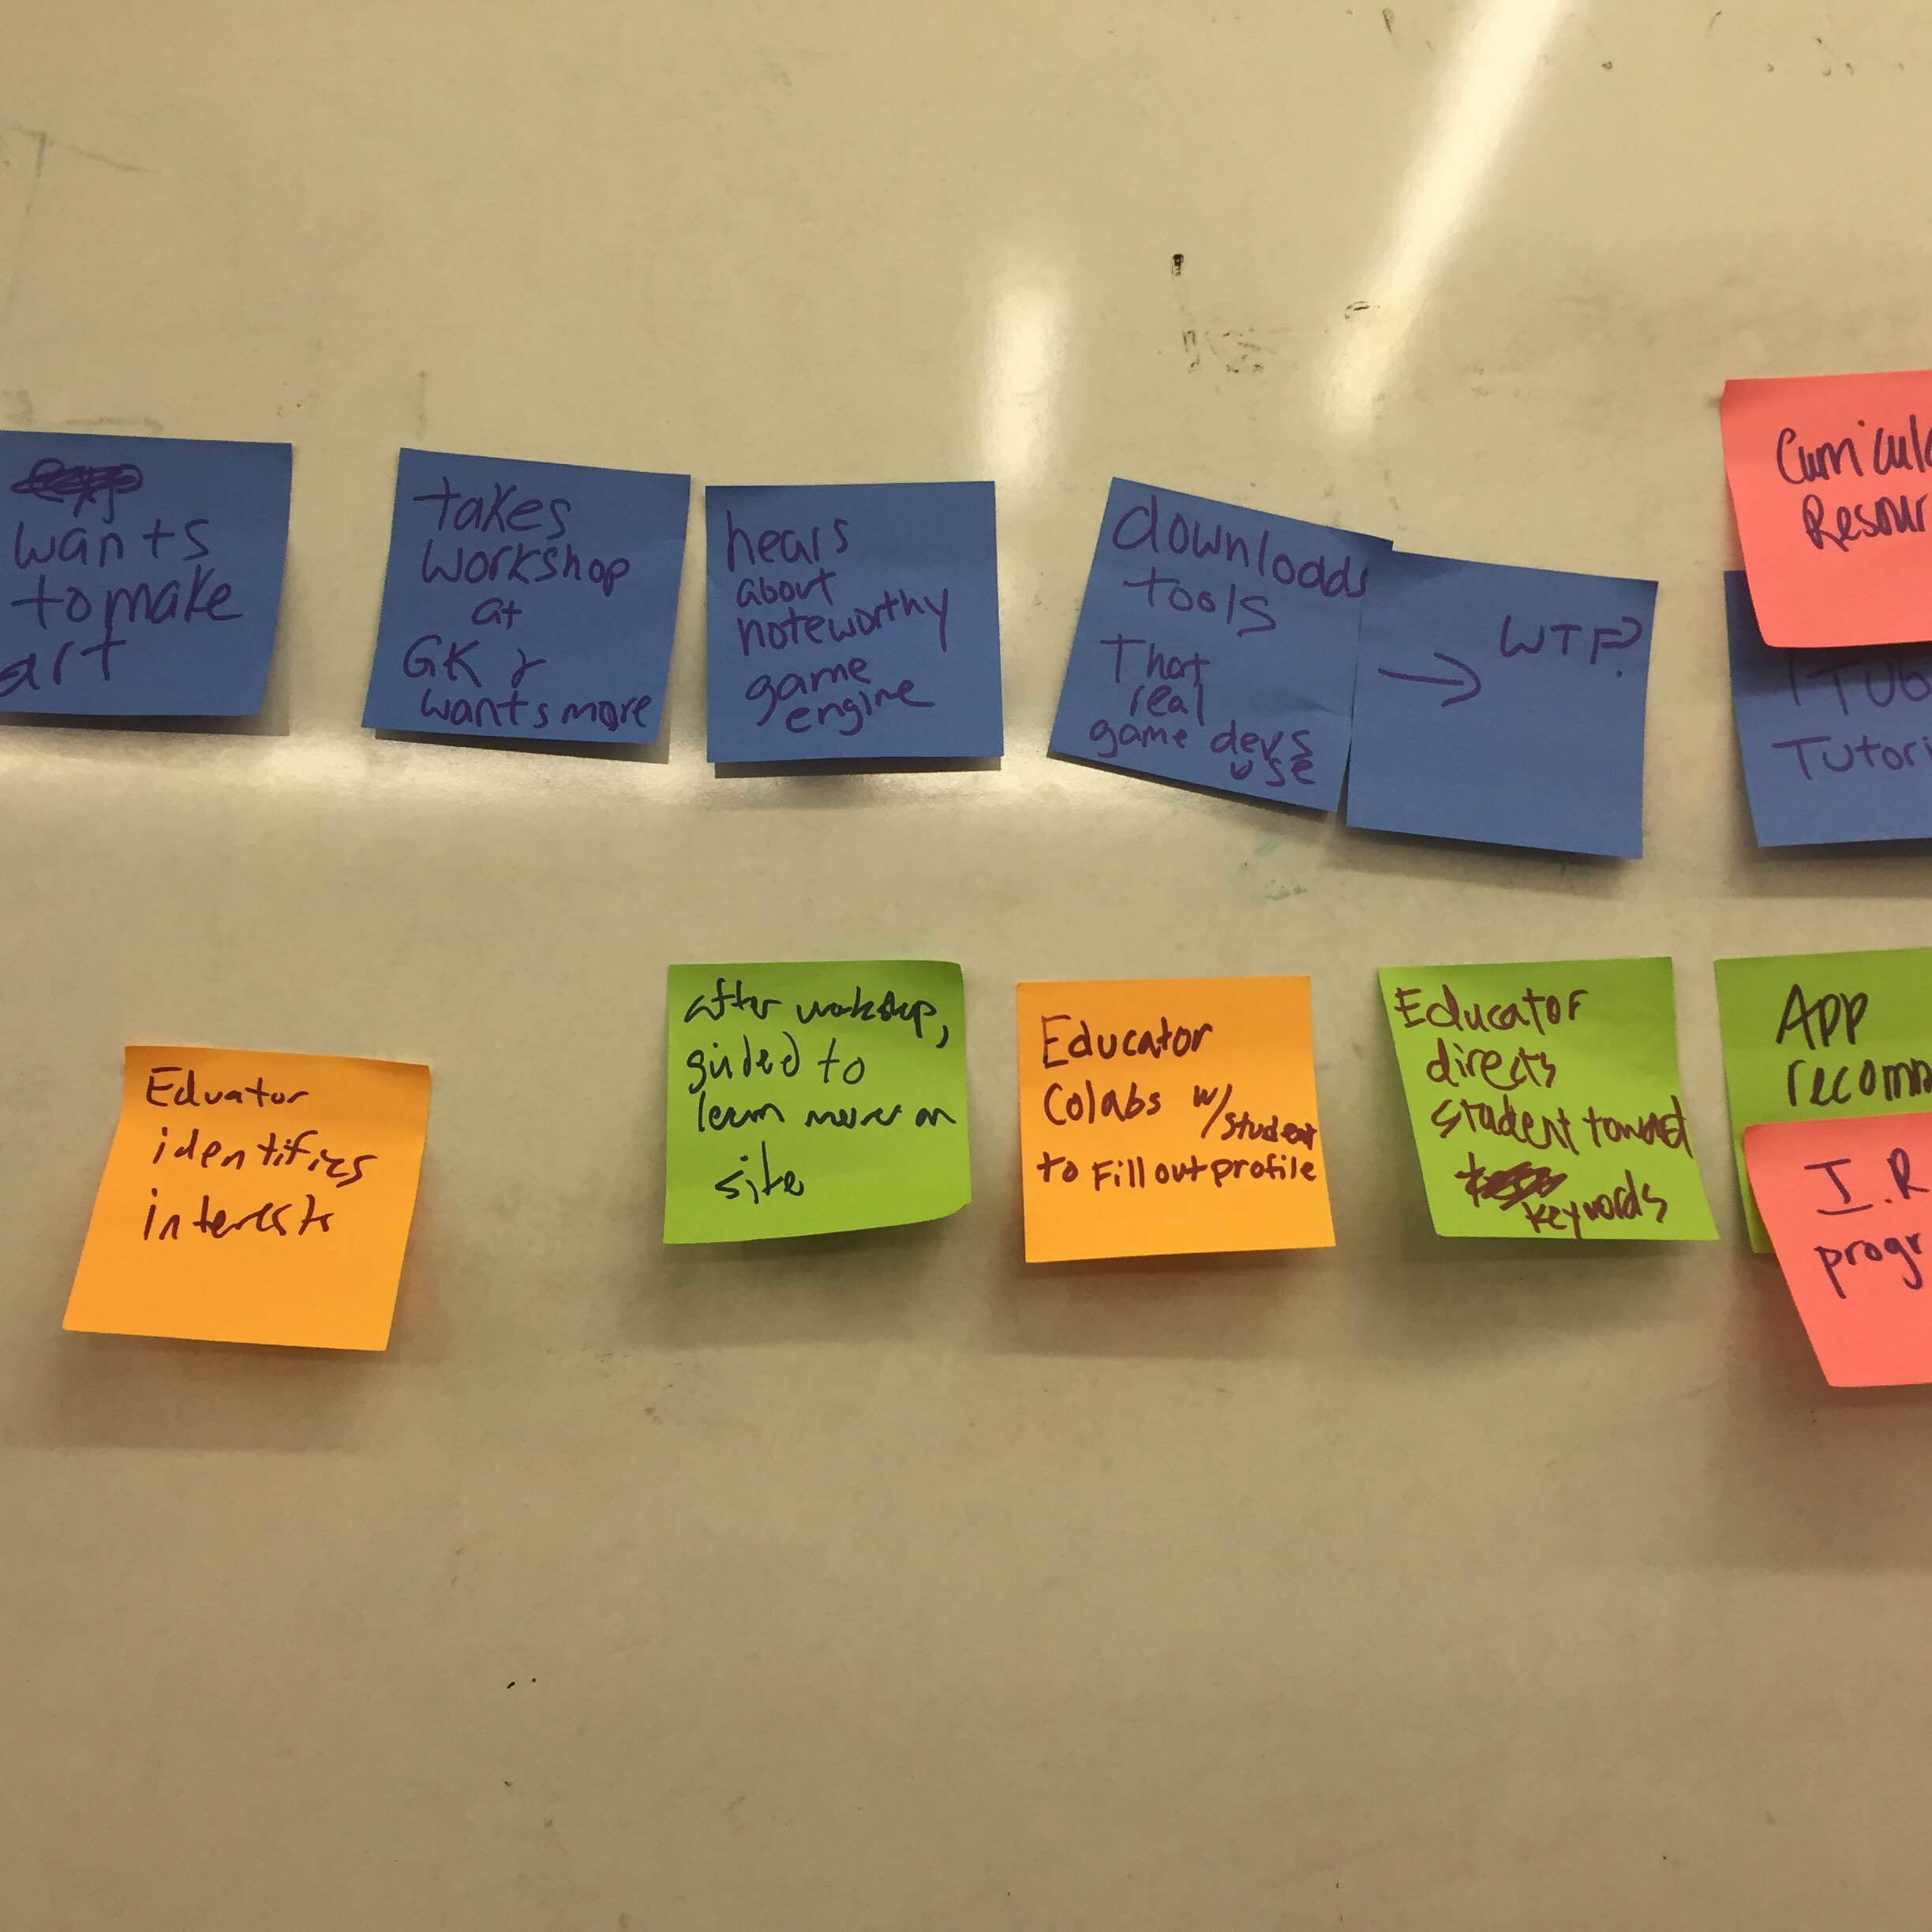 wants
to make
art
takes
workshop
at
GK &
wants more
hears
about
noteworthy
game
engine
downloads
tools
That
real
game devs
use
→ WTF?
Curricul
Resour
Tutori
Eduator
identifies
interests
after workshop,
guided to
learn more on
site
Educator
Colabs w/student
to Fill out profile
Educator
directs
student toward
keywords
App
recomm
I.R
progr